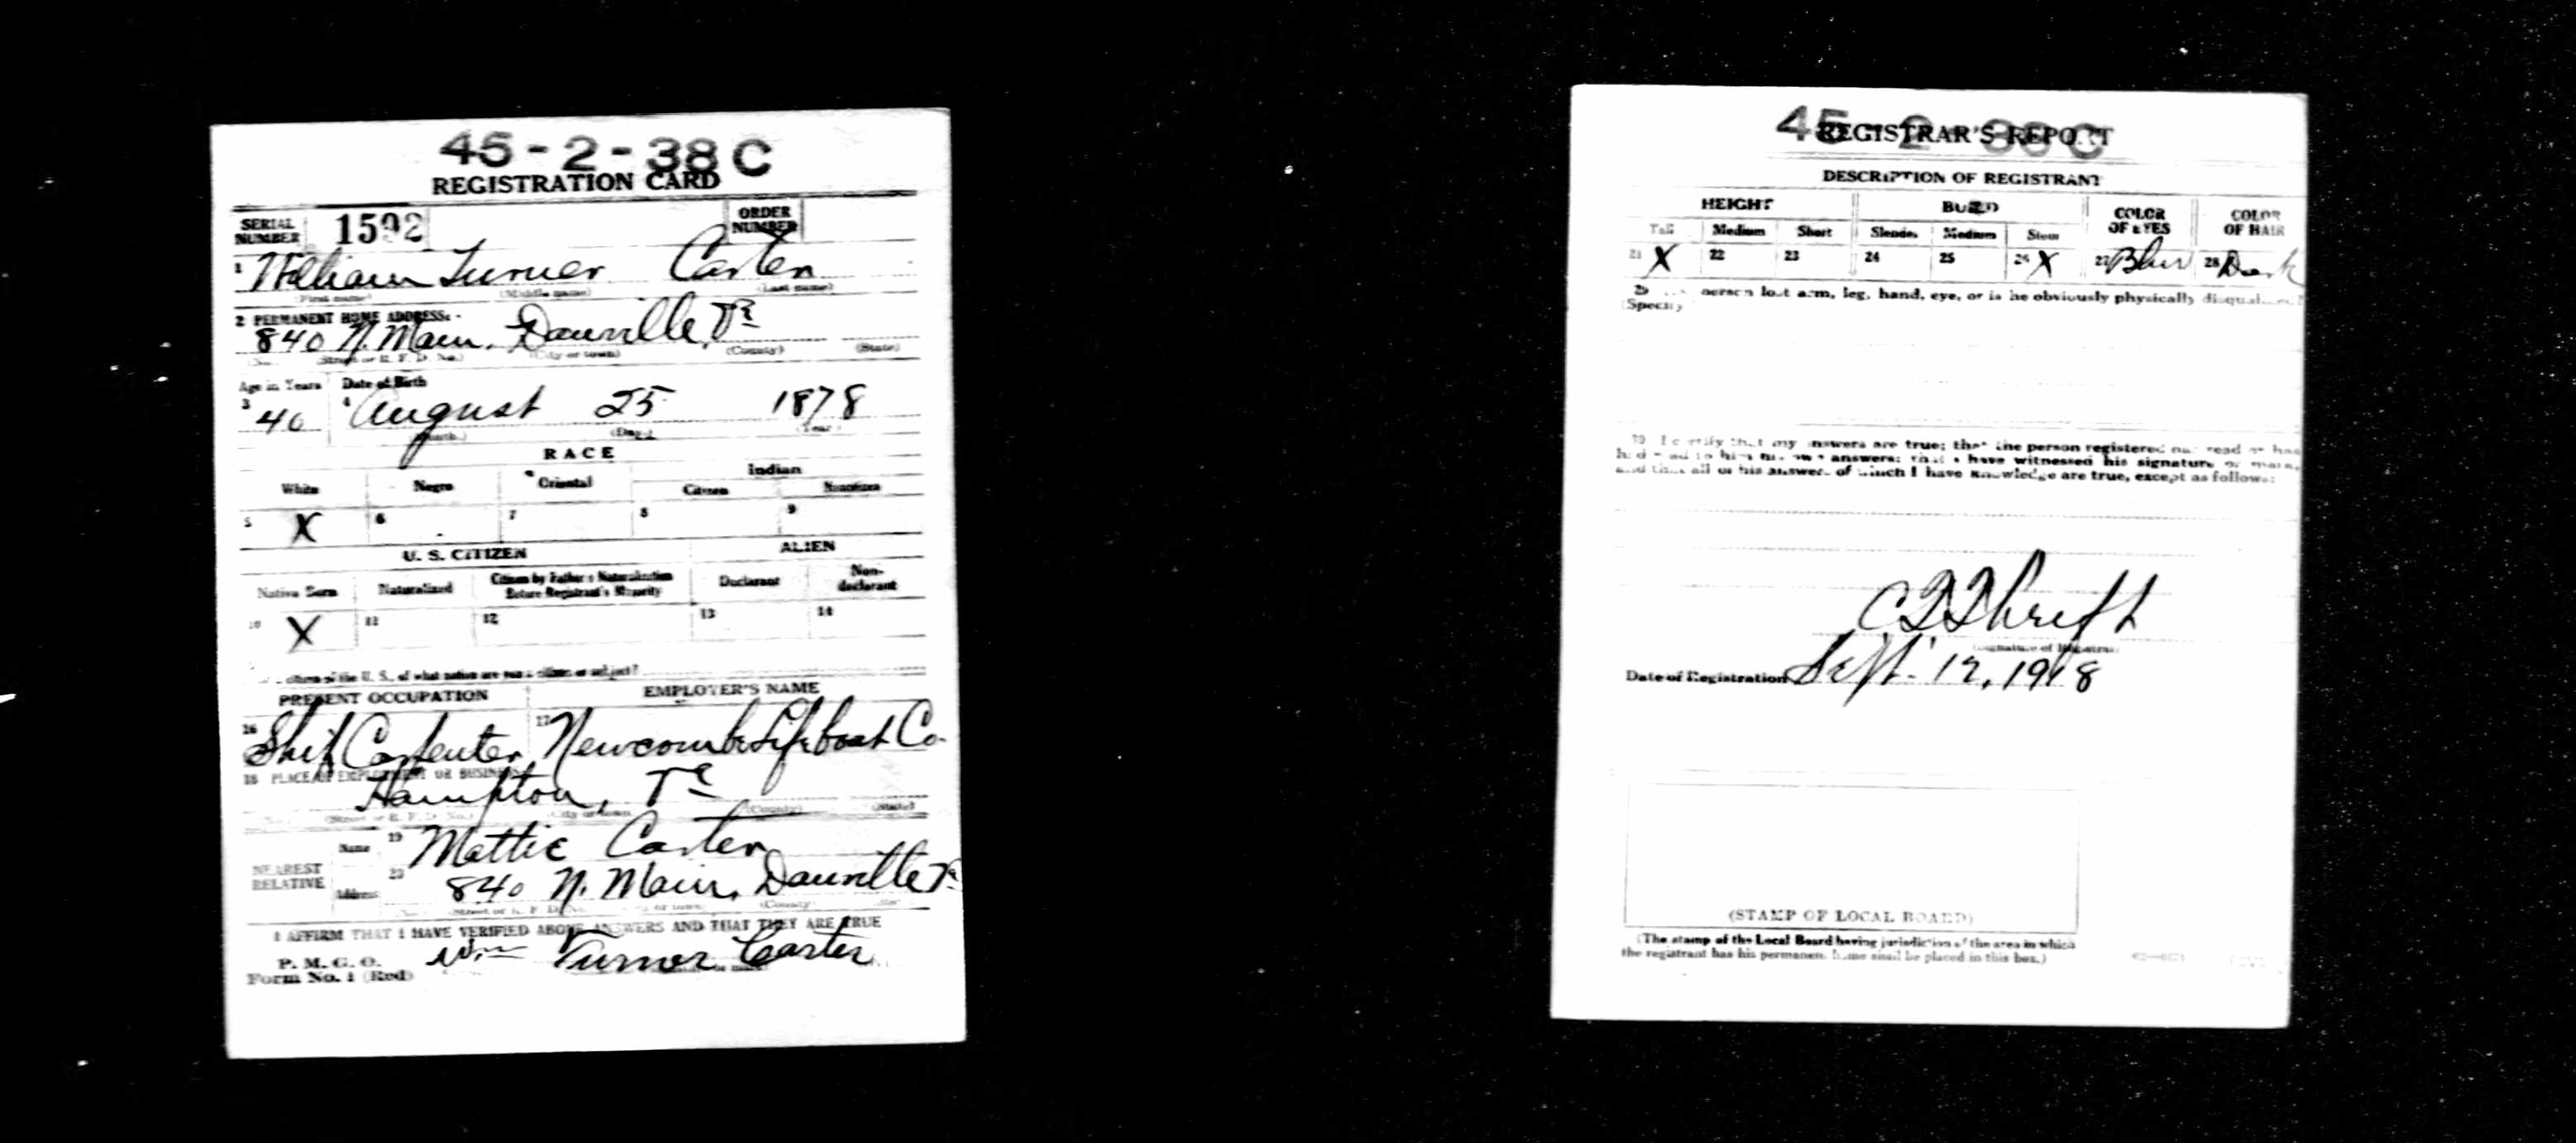 45-2-38 C
REGISTRATION CARD
SERIAL NUMBER 1592 ORDER NUMBER
1 William Turner Carter
(First name) (Middle name) (Last name)
2 PERMANENT HOME ADDRESS:
840 N. Main, Danville, Va
(Street or R. F. D. No.) (City or town) (County) (State)
Age in Years Date of Birth
3 40 4 August 25 1878
(Month.) (Day.) (Year.)
RACE
White Negro Oriental Indian
Citizen Noncitizen
5 X 6 7 8 9
U. S. CITIZEN ALIEN
Native Born Naturalized Citizen by Father's Naturalization Before Registrant's Majority Declarant Non-declarant
10 X 11 12 13 14
citizen of the U. S., of what nation are you a citizen or subject?
PRESENT OCCUPATION EMPLOYER'S NAME
16 Ship Carpenter 17 Newcomb Lifeboat Co.
18 PLACE OF EMPLOYMENT OR BUSINESS
Hampton, Va
(Street or R. F. D. No.) (City or town) (County) (State)
NEAREST RELATIVE
Name 19 Mattie Carter
Address 20 840 N. Main, Danville Va
(Street or R. F. D. No.) (City or town) (County)
I AFFIRM THAT I HAVE VERIFIED ABOVE ANSWERS AND THAT THEY ARE TRUE
P. M. G. O.
Form No. 1 (Red) Wm Turner Carter
45-2-38 C
REGISTRAR'S REPORT
DESCRIPTION OF REGISTRANT
HEIGHT BUILD COLOR OF EYES COLOR OF HAIR
Tall Medium Short Slender Medium Stout
21 X 22 23 24 25 26 X 27 Blue 28 Dark
29 person lost arm, leg, hand, eye, or is he obviously physically disqualified?
(Specify
30 I certify that my answers are true; that the person registered has read or has
had read to him his own answers; that I have witnessed his signature or mark,
and that all of his answers of which I have knowledge are true, except as follows:
(Signature of Registrar)
Date of Registration Sept. 12, 1918
(STAMP OF LOCAL BOARD)
(The stamp of the Local Board having jurisdiction of the area in which
the registrant has his permanent home shall be placed in this box.)